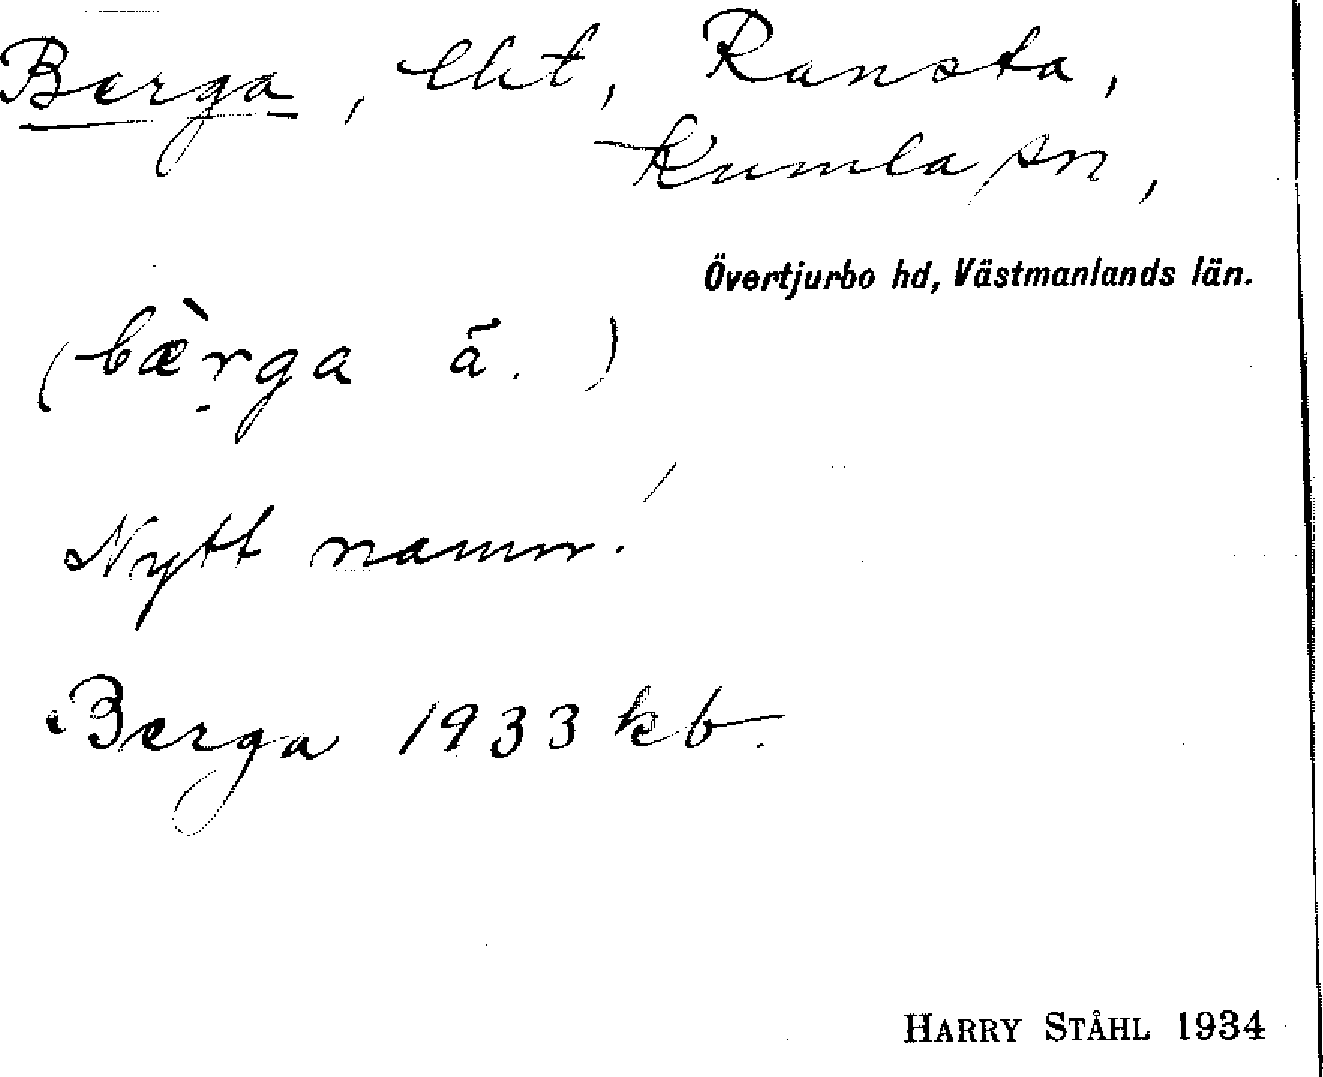 Berga, lht, Ransta,
Kumla sn,
Övertjurbo hd, Västmanlands län.
(bæ̀rga ā.)
Nytt namn.
Berga 1933 kb.
HARRY STÅHL 1934